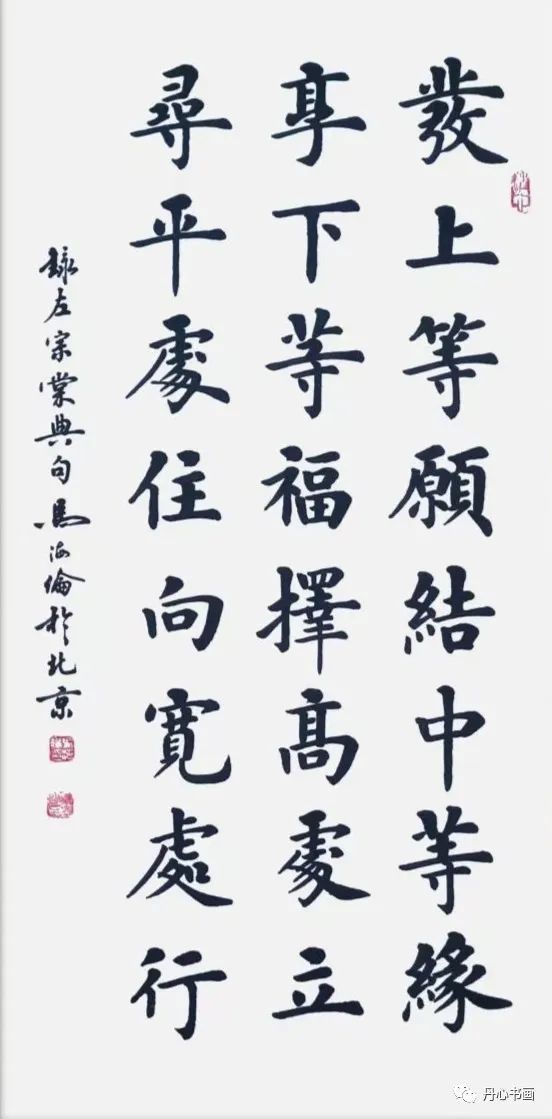 發上等願結中等緣
享下等福擇高處立
尋平處住向寬處行
錄左宗棠典句馬海倫於北京
丹心书画